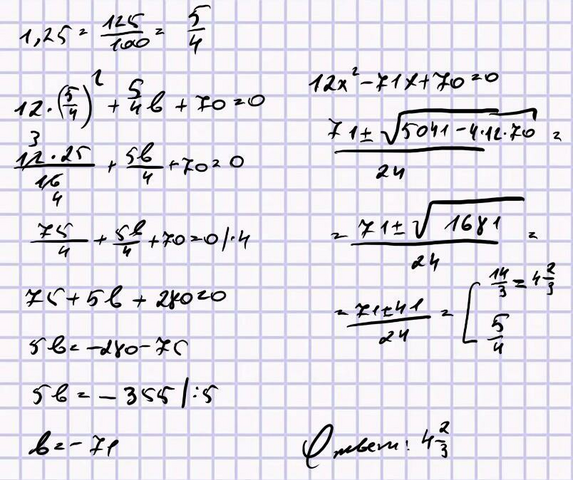 1,25 = 125/100 = 5/4
12·(5/4)² + 5/4 b + 70 = 0
12·25/16 + 5b/4 + 70 = 0
3
4
75/4 + 5b/4 + 70 = 0 |·4
75 + 5b + 280 = 0
5b = -280 - 75
5b = -355 |:5
b = -71
12x² - 71x + 70 = 0
71 ± √5041 - 4·12·70 / 24 =
= 71 ± √1681 / 24 =
= 71 ± 41 / 24 = [ 14/3 = 4 2/3
5/4
Ответ: 4 2/3